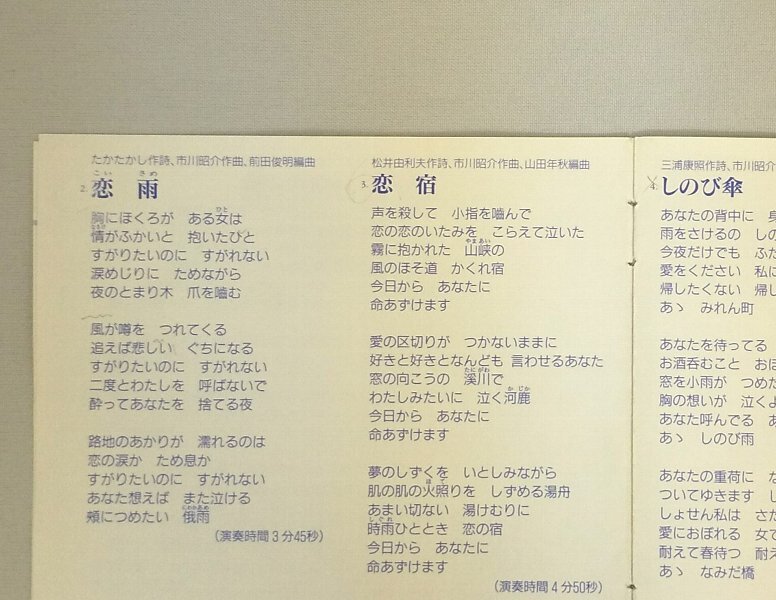 たかたかし作詩、市川昭介作曲、前田俊明編曲
2. 恋雨
胸にほくろが ある女は
情がふかいと 抱いたひと
すがりたいのに すがれない
涙めじりに ためながら
夜のとまり木 爪を嚙む
風が噂を つれてくる
追えば悲しい ぐちになる
すがりたいのに すがれない
二度とわたしを 呼ばないで
酔ってあなたを 捨てる夜
路地のあかりが 濡れるのは
恋の涙か ため息か
すがりたいのに すがれない
あなた想えば また泣ける
頰につめたい 俄雨
(演奏時間3分45秒)
松井由利夫作詩、市川昭介作曲、山田年秋編曲
3. 恋宿
声を殺して 小指を嚙んで
恋の恋のいたみを こらえて泣いた
霧に抱かれた 山峡の
風のほそ道 かくれ宿
今日から あなたに
命あずけます
愛の区切りが つかないままに
好きと好きとなんども 言わせるあなた
窓の向こうの 溪川で
わたしみたいに 泣く河鹿
今日から あなたに
命あずけます
夢のしずくを いとしみながら
肌の肌の火照りを しずめる湯舟
あまい切ない 湯けむりに
時雨ひととき 恋の宿
今日から あなたに
命あずけます
(演奏時間4分50秒)
三浦康照作詩、市川昭介
4. しのび傘
あなたの背中に
雨をさけるの しの
今夜だけでも ふた
愛をください 私に
帰したくない 帰し
あゝ みれん町
あなたを待ってる
お酒呑むこと おぼ
窓を小雨が つめた
胸の想いが 泣くよ
あなた呼んでる あ
あゝ しのび雨
あなたの重荷に な
ついてゆきます し
しょせん私は さだ
愛におぼれる 女で
耐えて春待つ 耐え
あゝ なみだ橋